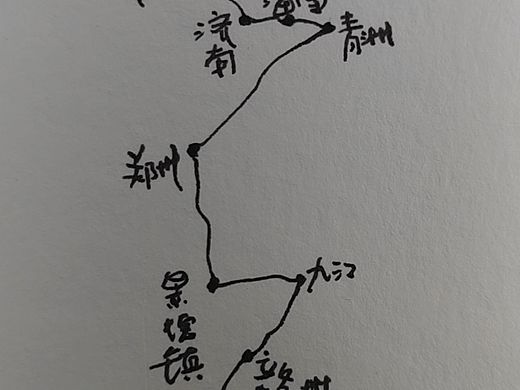 济南
青州
郑州
九江
景德镇
赣州